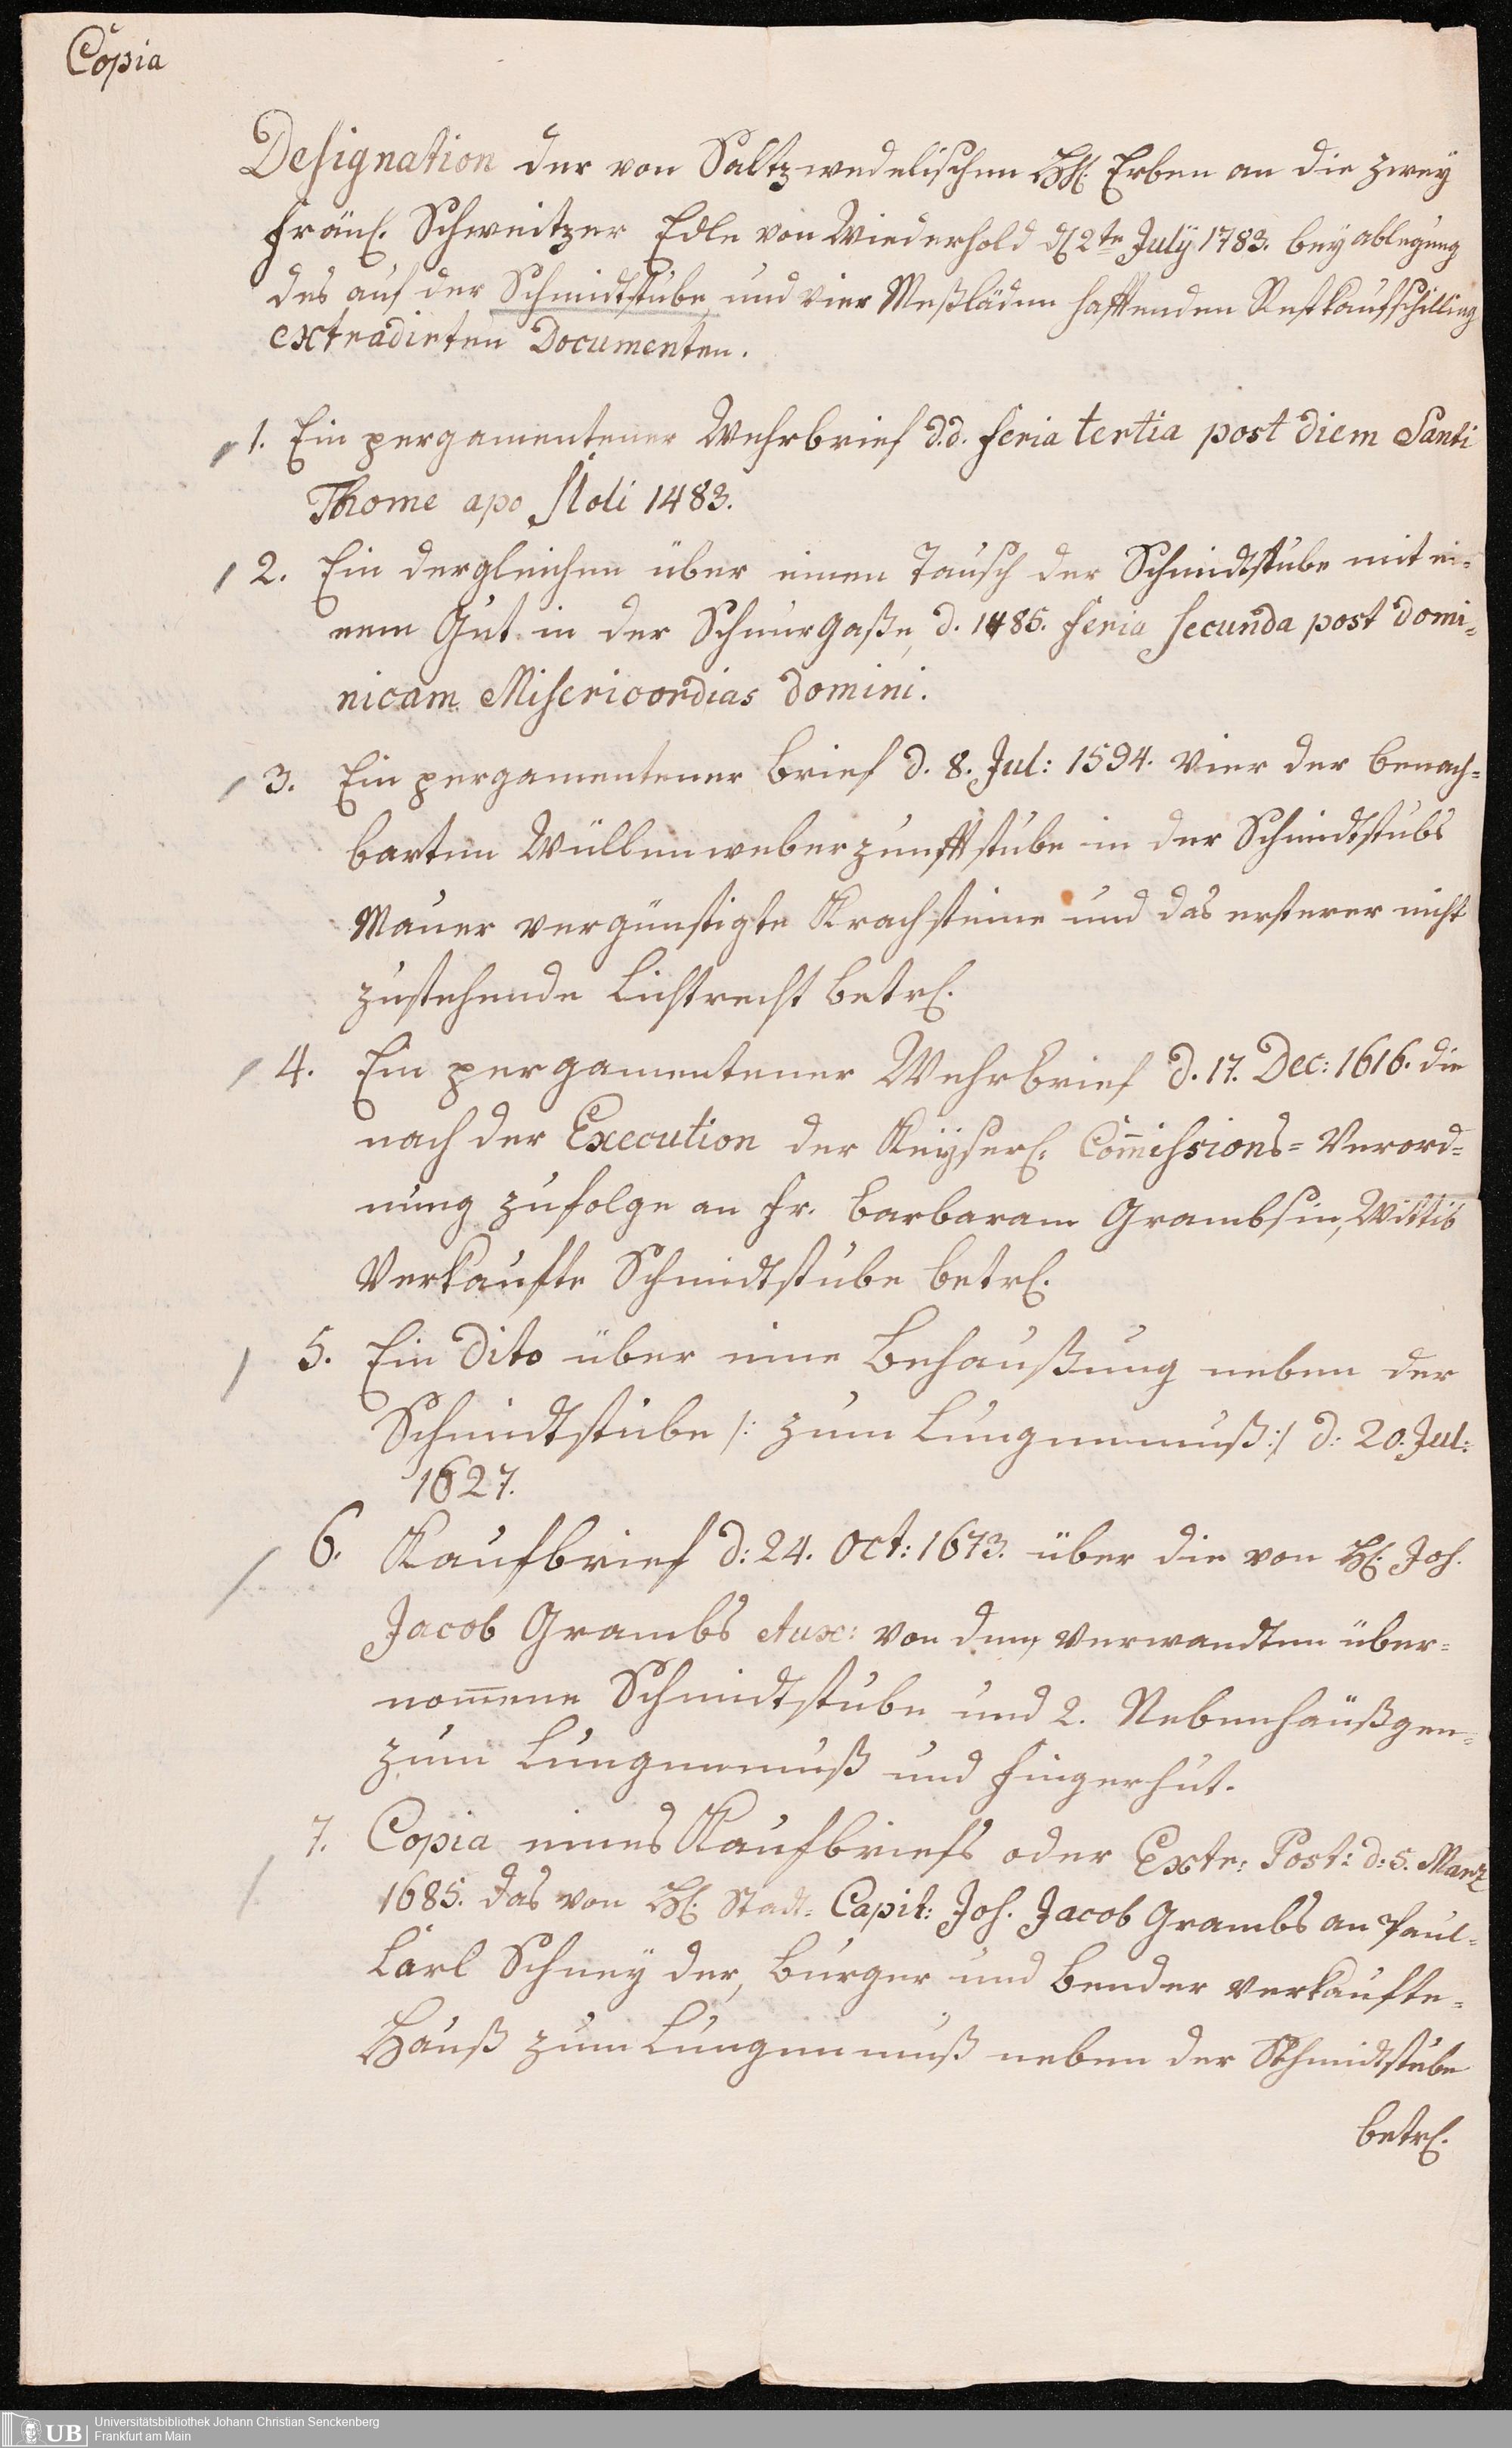 Copia
Designation der von Saltzwedelischen HH: Erben an die zweÿ
Fräul. Schweitzer Edle von Wiederhold d 2te Julÿ 1783. beÿ ablegung
des auf der Schmidtstube und vier Meßläden hafftenden Restkaufschilling
extradirten Documenten.
1. Ein pergamentener Wehrbrief d.d. feria tertia post diem Santi
Thome apostoli 1483.
2. Ein dergleichen über einen Tausch der Schmidtstube mit ei-
nem Gut in der Schnurgaße, d. 1485. feria secunda post domi-
nicam Misericordias domini.
3. Ein pergamentener brief d. 8. Jul: 1594. vier der benach-
barten Wüllenweberzunfftstube in der Schmidtstubs
Mauer vergünstigte Krachsteine und das ersterer nicht
zustehende Lichtrecht betrl.
4. Ein pergamentener Wehrbrief d. 17. Dec: 1616. die
nach der Execution der Keÿserl. Com̄issions-Verord-
nung zufolge an Fr. Barbaram Grambsin, Wittib
verkaufte Schmidtstube betrl.
5. Ein dito über eine Behaußung neben der
Schmidtstube /: zum Lungenmuß :/ d: 20. Jul:
1627.
6. Kaufbrief d: 24. Oct: 1673. über die von H: Joh.
Jacob Grambs Aux: von den verwandten über-
nom̄ene Schmidtstube und 2. Nebenhäußgen-
zum Lungenmuß und Fingerhut.
7. Copia eines Kaufbriefs oder Extr: Post: d: 5. Martz
1685. das von H: Stadt-Capit: Joh. Jacob Grambs an Paul-
Carl Schneÿder, Burger und Bender verkaufte-
Hauß zum Lungenmuß neben der Schmidtstube
betrl.
UB
Universitätsbibliothek Johann Christian Senckenberg
Frankfurt am Main